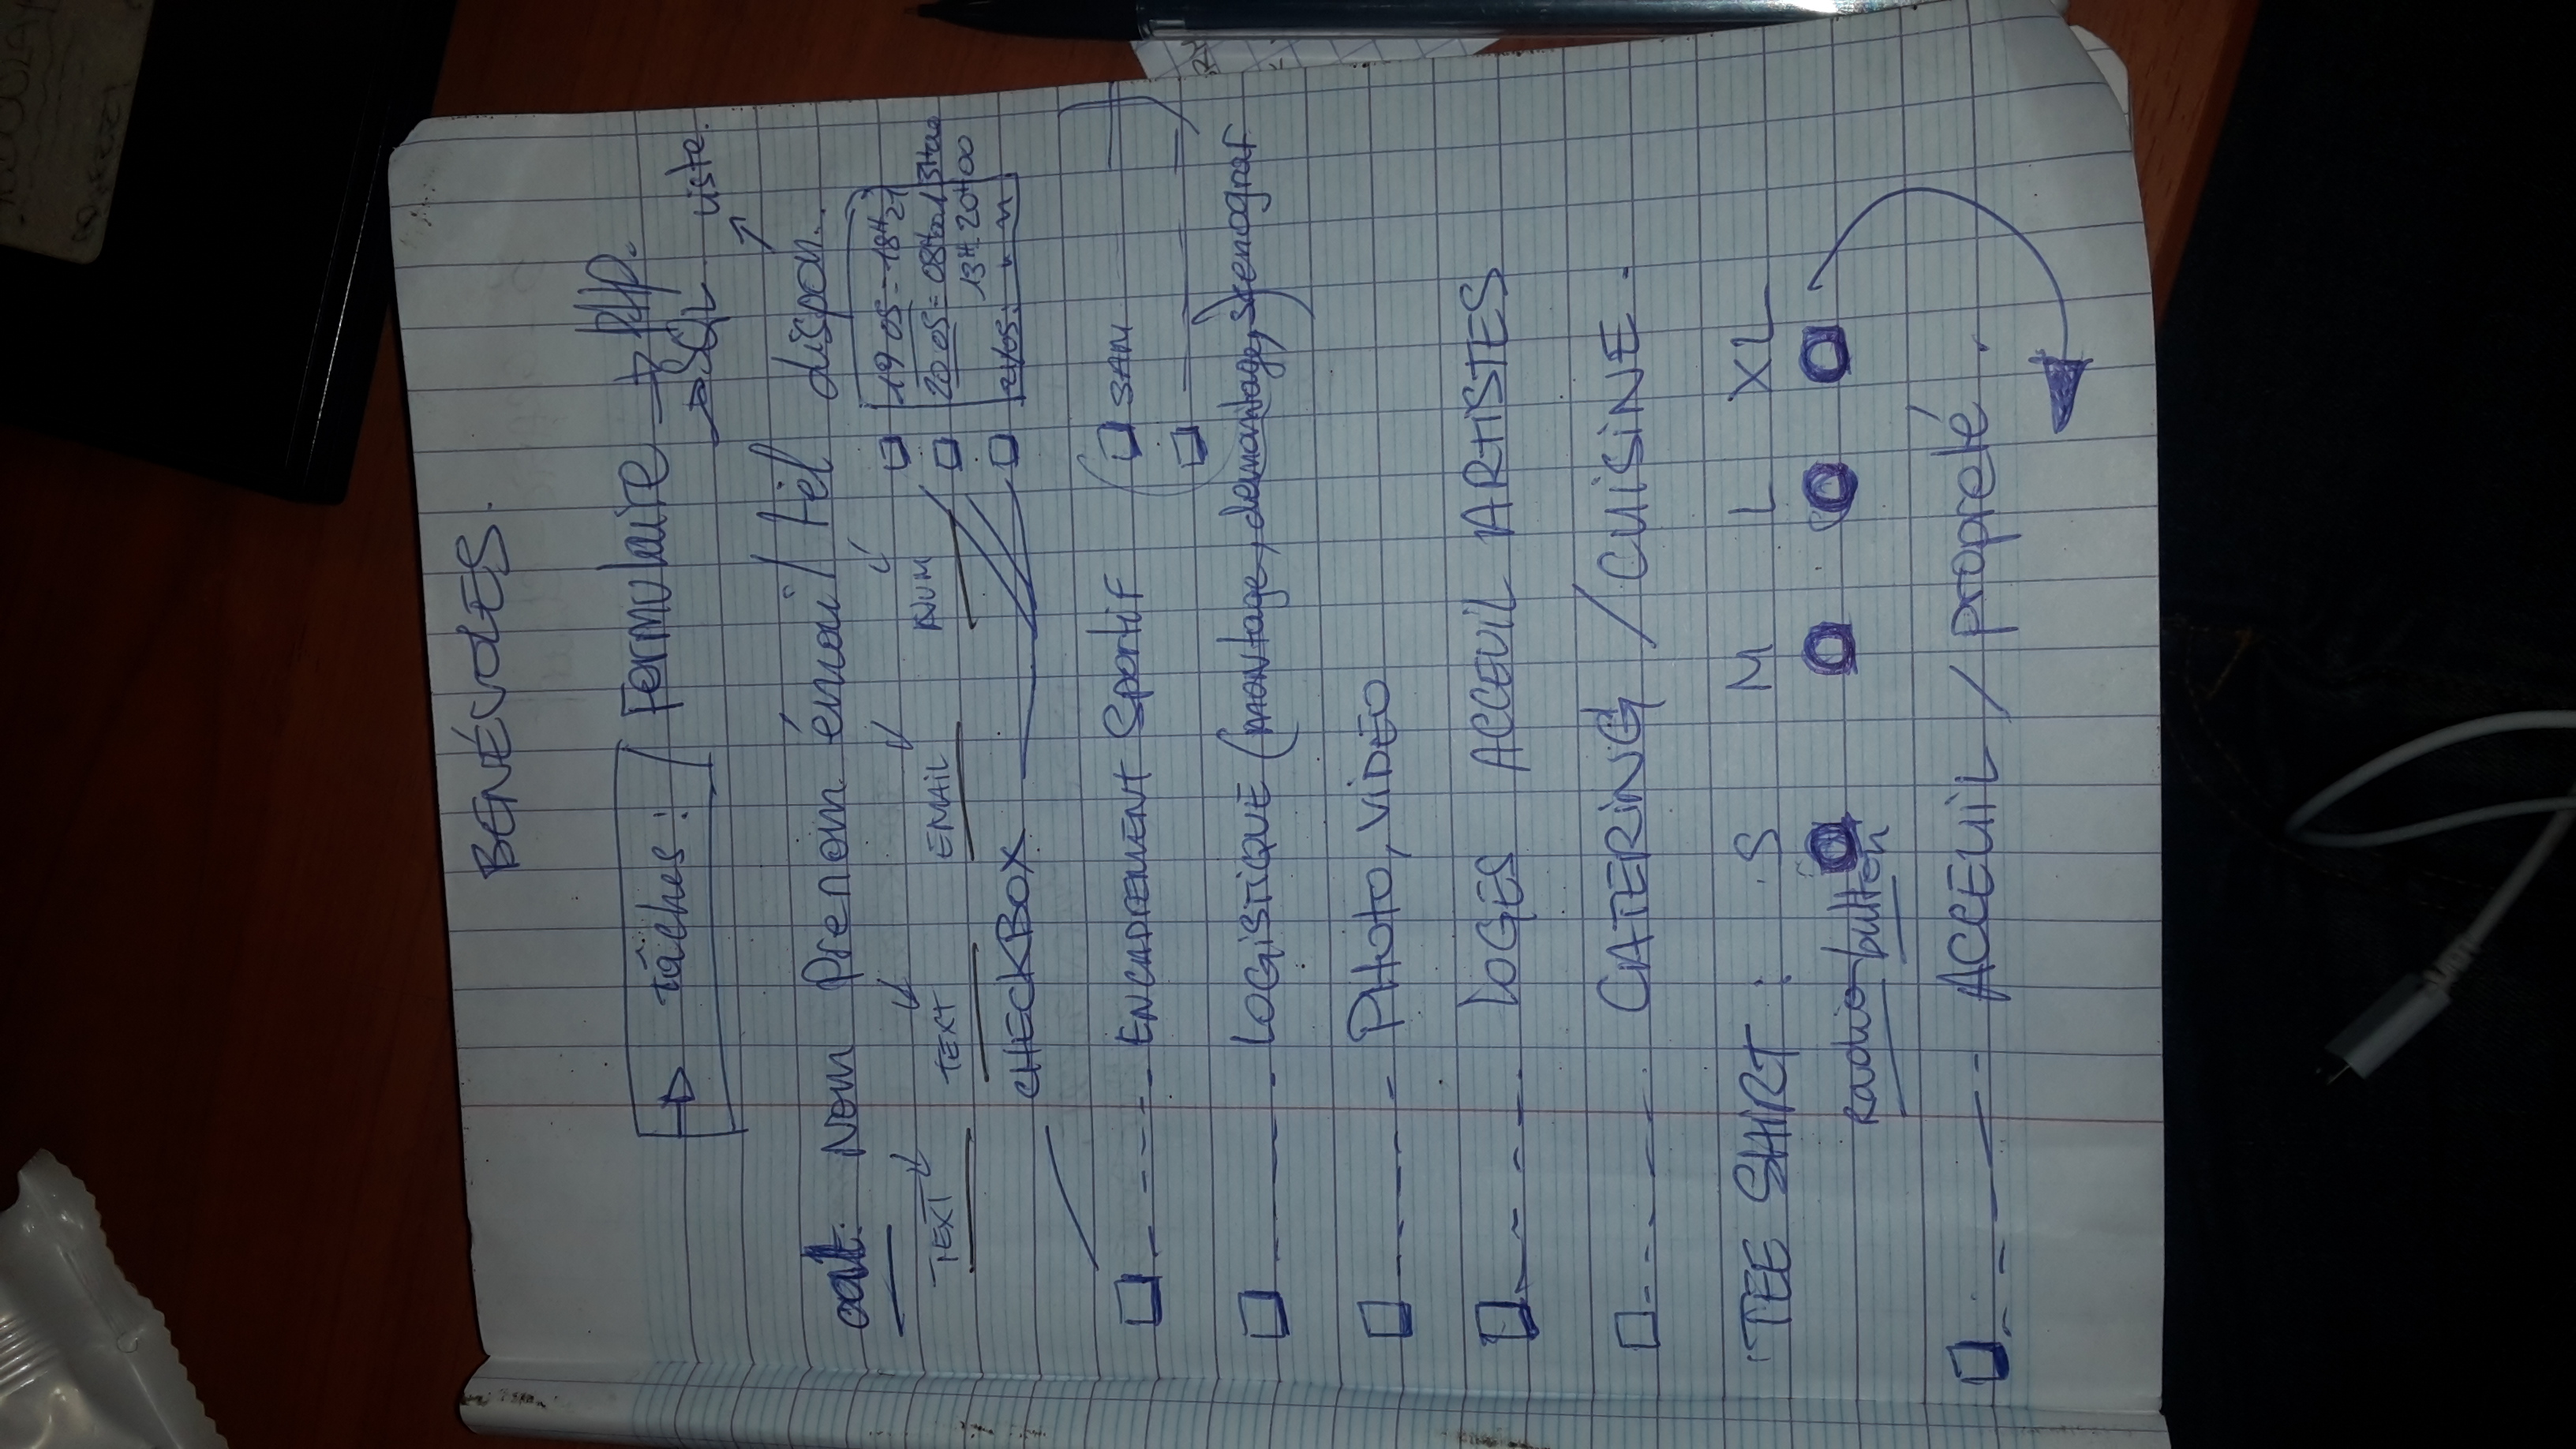 BENÉVOLES.
→ tâches : / Formulaire → PHP.
→ SQL
liste
cat: Nom Prenom émail / tél dispon.
TEXT TEXT EMAIL NUM
19 05 = 18H 21
20 05 = 08H00 13H00
13H 20H00
21 05
CHECKBOX
ENCADREMENT Sportif
SAM
LOGISTIQUE (montage, demontage,
PHOTO, VIDÉO
LOGES ACCEUIL ARTISTES
CATERING / CUISINE.
TEE SHIRT : S M L XL
Radio button
ACCEUIL / propreté.